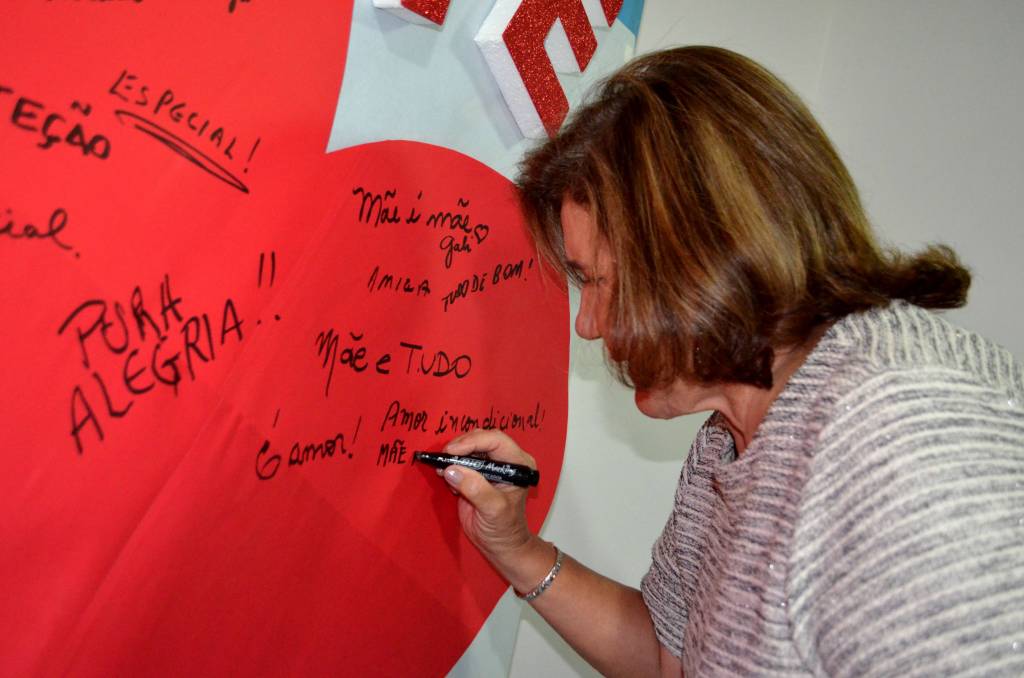 TEÇÃO
ESPECIAL!
ial.
PURA
ALEGRIA!!
Mãe é mãe
Gabi
AMIGA TUDO DE BOM!
Mãe e TUDO
É amor!
Amor incondicional!
MÃE